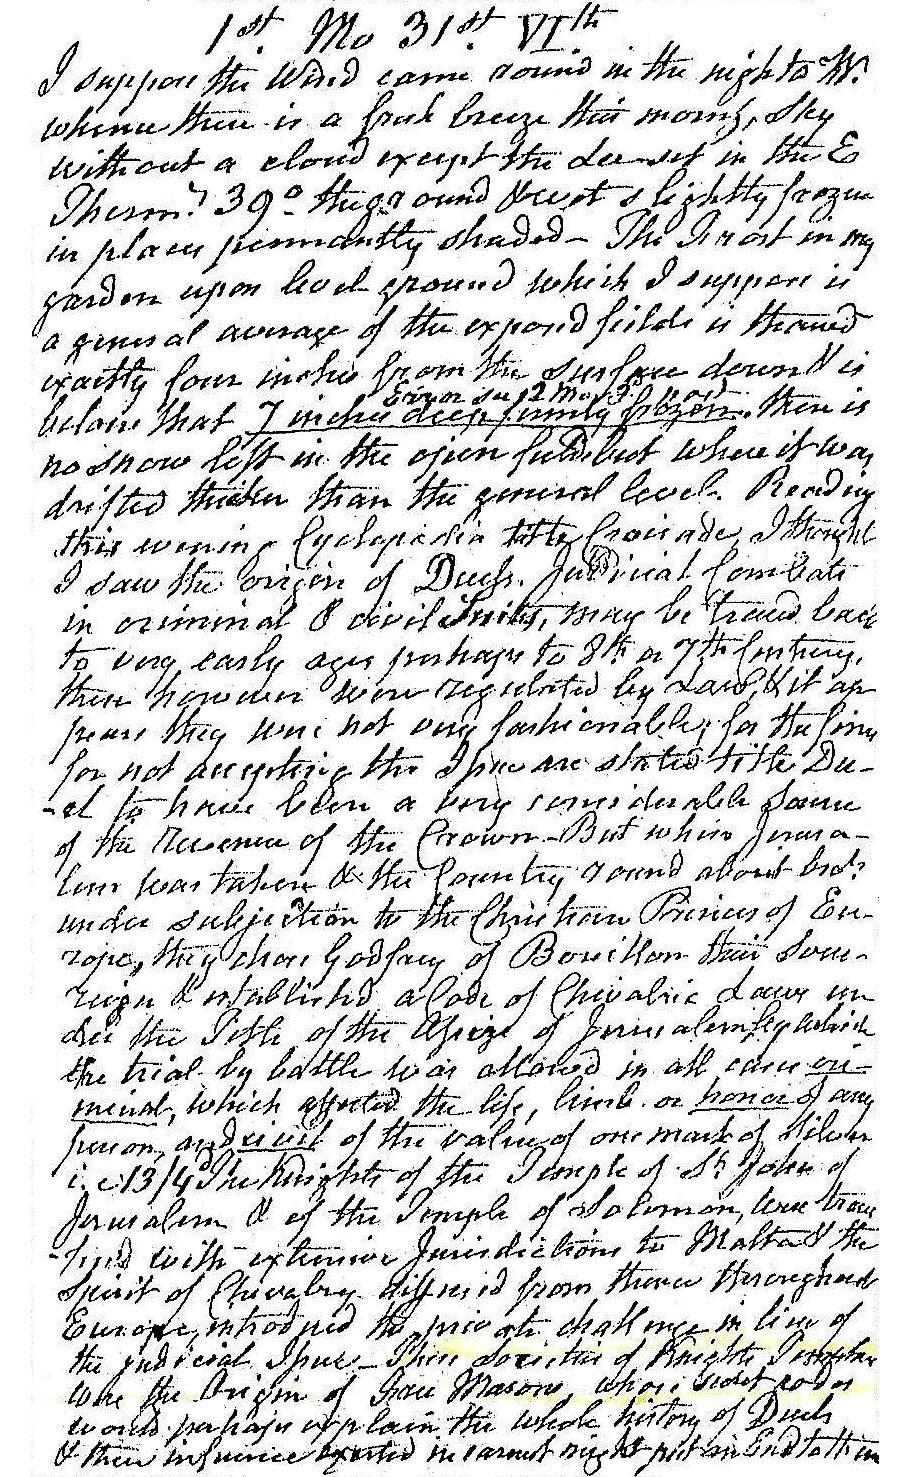 1st. Mo 31st VIth
I suppose the Wind came round in the night to W.
whence there is a fresh breeze this morng, Sky
without a cloud except the Sun-set in the E
Therm.r 39° the ground & crust slightly frozen
in places permantly shaded - The Frost in my
garden upon level ground which I suppose is
a general average of the exposed fields is thawed
exactly four inches from the surface down & is
Error see 12 Mo. 3d
below that 7 inches deep firmly frozen. there is
no snow left in the open field but where it was
drifted thicker than the general level. Reading
this evening Cyclopedia title Croisade, I thought
I saw the origin of Duels. Judicial Combats
in criminal & civil Suits, may be traced back
to very early ages perhaps to 8th or 7th Century,
these however were regulated by Law, & it ap
pears they were not very fashionable; for the fines
for not accepting the Issue are stated title Du-
-el to have been a very considerable Source
of the Revenue of the Crown - But when Jerusa-
lem was taken & the Country round about brot.
under subjection to the Christian Princes of Eu-
rope, they chose Godfrey of Bouillon their Sove-
reign & established a Code of Chivalric Laws un
der the Title of the Assize of Jerusalem, by which
the trial by battle was allowed in all cases cri-
minal, which affected the life, limb or honor of any
person, and civil of the value of one mark of Silver
i.e 13/4d The Knights of the Temple of St. John of
Jerusalem & of the Temple of Solomon, were trans
-fered with extensive Jurisdictions to Malta & the
Spirit of Chivalry diffused from thence throughout
Europe, introduced the private challenge in lieu of
the judicial Issue - These Societies of Knights Templar
were the Origin of Free Masons, whose secret codes
would perhaps explain the whole history of Duels
& their influence exerted in earnest might put an End to them